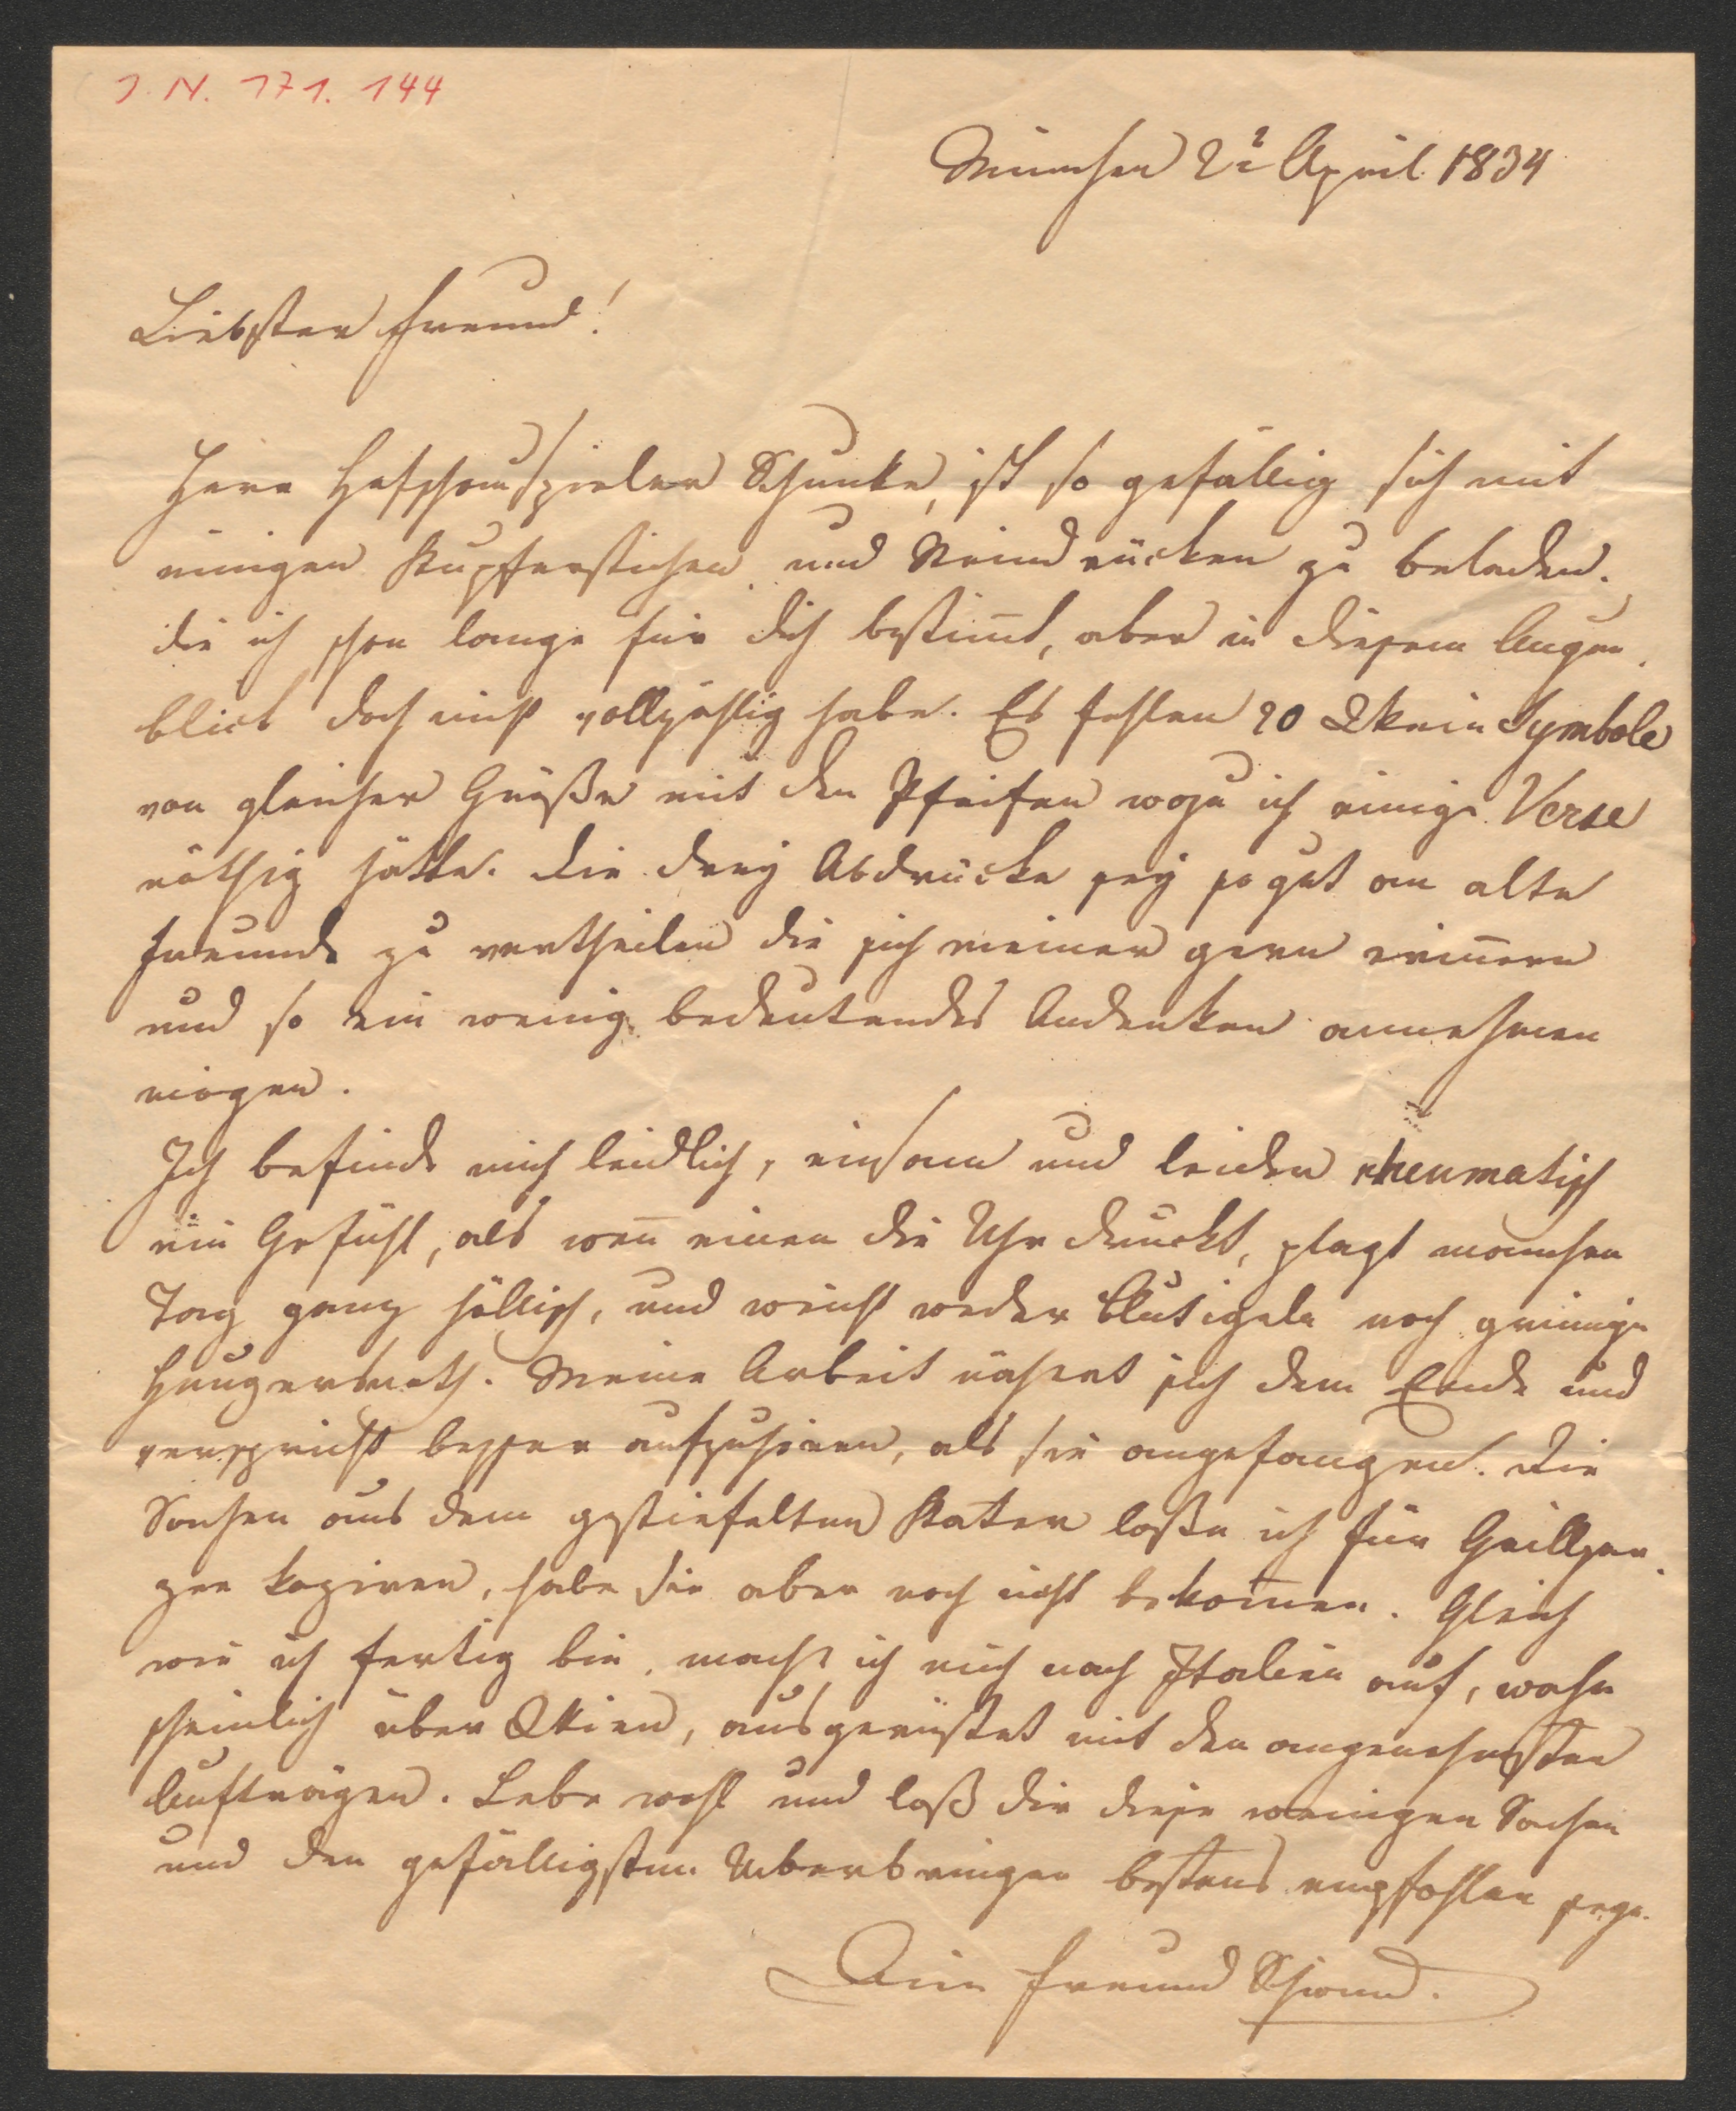 J. N. 171. 144
München 2t April 1834
Liebster Freund!
Herr Hofschauspieler Schunke, ist so gefällig sich mit
einigen Kupferstichen und Steindrücken zu beladen.
die ich schon lange für dich bestim̅t, aber in diesem Augen
blick doch nicht vollzählig habe. Es fehlen 20 Wein Symbole
von gleicher Größe mit den Pfeifen wozu ich einige Verse
nöthig hätte. Die drey Abdrücke sey so gut an alte
Freunde zu vertheilen die sich meiner gern erin̅ern
und so ein wenig bedeutendes Andenken annehmen
mögen.
Ich befinde mich leidlich, einsam und leider rheumatisch
ein Gefühl, als wen̅ einen die Uhr druckt, plagt manchen
Tag ganz höllisch, und weicht weder Blutigeln noch
Hungersnoth. Meine Arbeit nähert sich dem Ende und
verspricht besser aufzuhören, als sie angefangen. Die
Sachen aus dem gestiefelten Kater laße ich für Grillpar
zer kopiren, habe sie aber noch nicht bekom̅en. Gleich
wie ich fertig bin, mach ich mich nach Italien auf, wahr
scheinlich über Wien, ausgerüstet mit den angenehmsten
Aufträgen. Lebe wohl und laß dir diese wenigen Sachen
und den gefälligsten Ueberbringer bestens empfohlen seyn.
Dein Freund Schwind.